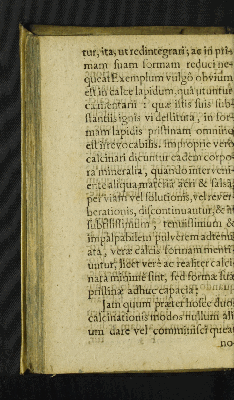 tur, ita, ut redintegrari, ac in pri-
mam suam formam reduci ne-
queat. Exemplum vulgò obvium
est in calce lapidum, quâ utuntur
cæmentarii: quæ istis suis sub-
stantiis ignis vi destituta, in for-
mam lapidis pristinam omninò
est irrevocabilis. Impropriè verò
calcinari dicuntur eadem corpo-
ra mineralia, quando interveni-
ente aliqua materia acri & salsâ,
per viam vel solutionis, vel rever-
berationis, discontinuantur, & in
subtilissimum, tenuissimum &
impalpabilem pulverem adtenu-
ata, veræ calcis formam menti-
untur, licet verè ac realiter calci-
nata minimè sint, sed formæ suæ
pristinæ adhuc capacia.
Jam quum præter hosce duos
calcinationis modos nullum ali-
um dare vel comminisci queat
no-